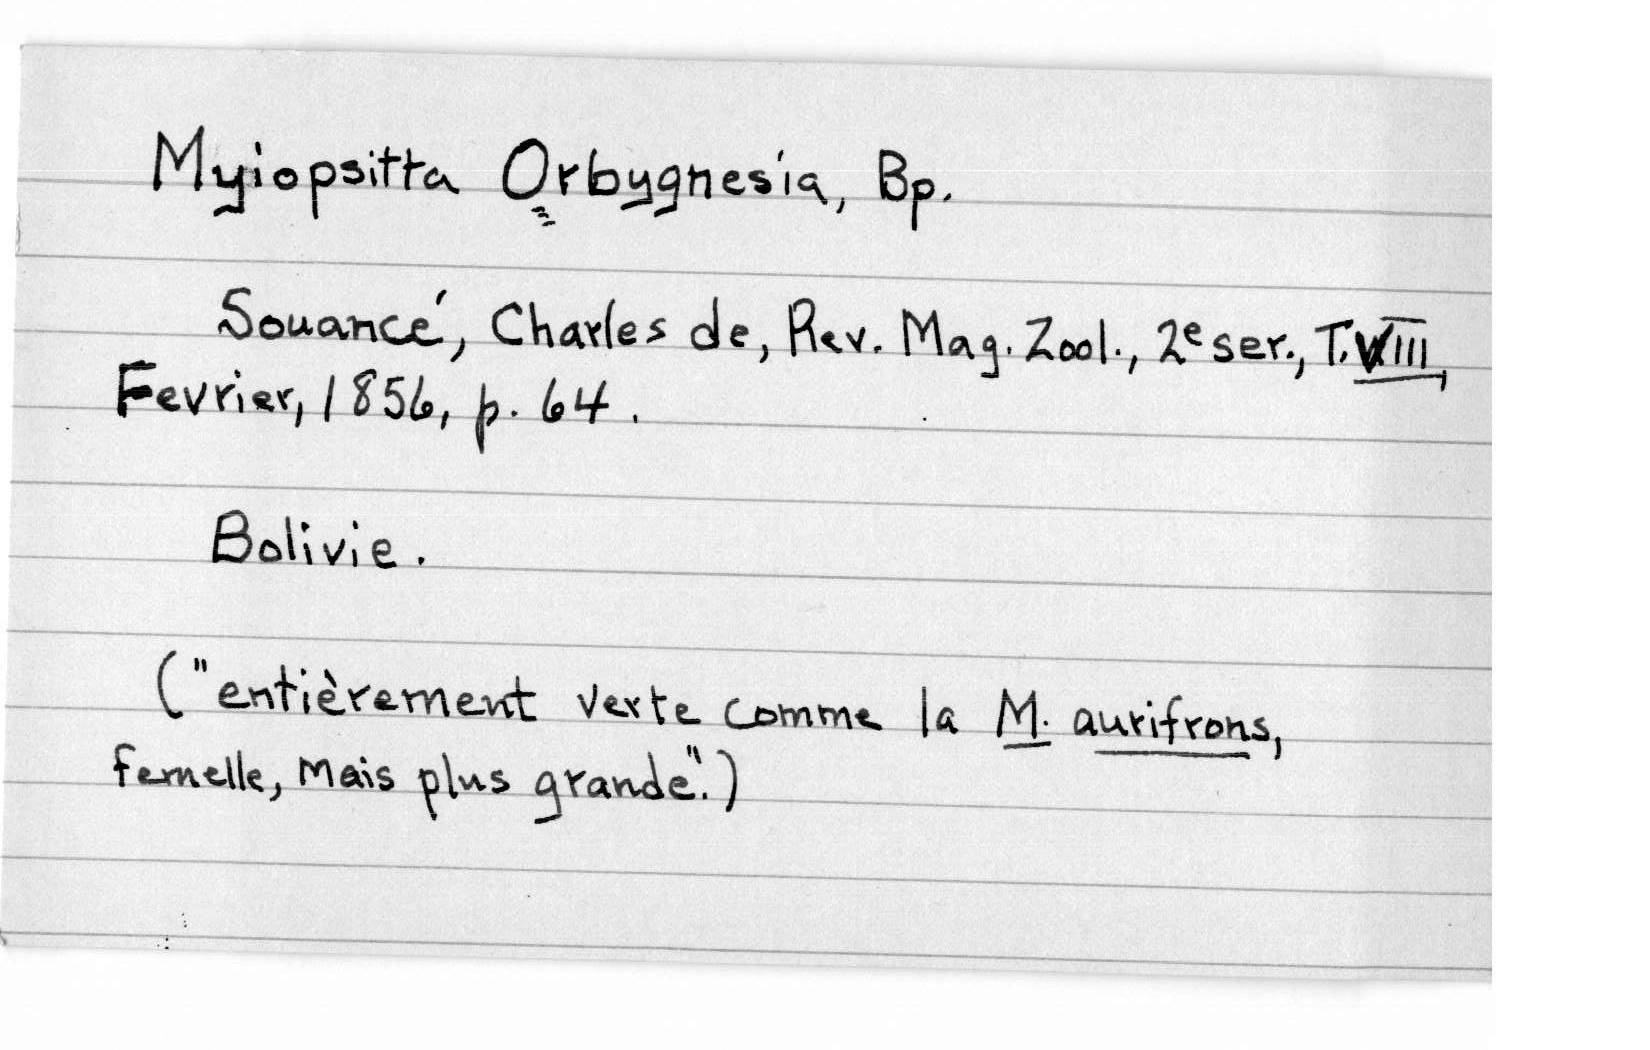 Myiopsitta Orbygnesia, Bp.
Souancé, Charles de, Rev. Mag. Zool., 2e ser., T. VIII,
Fevrier, 1856, p. 64.
Bolivie.
("entièrement verte comme la M. aurifrons,
femelle, mais plus grande".)